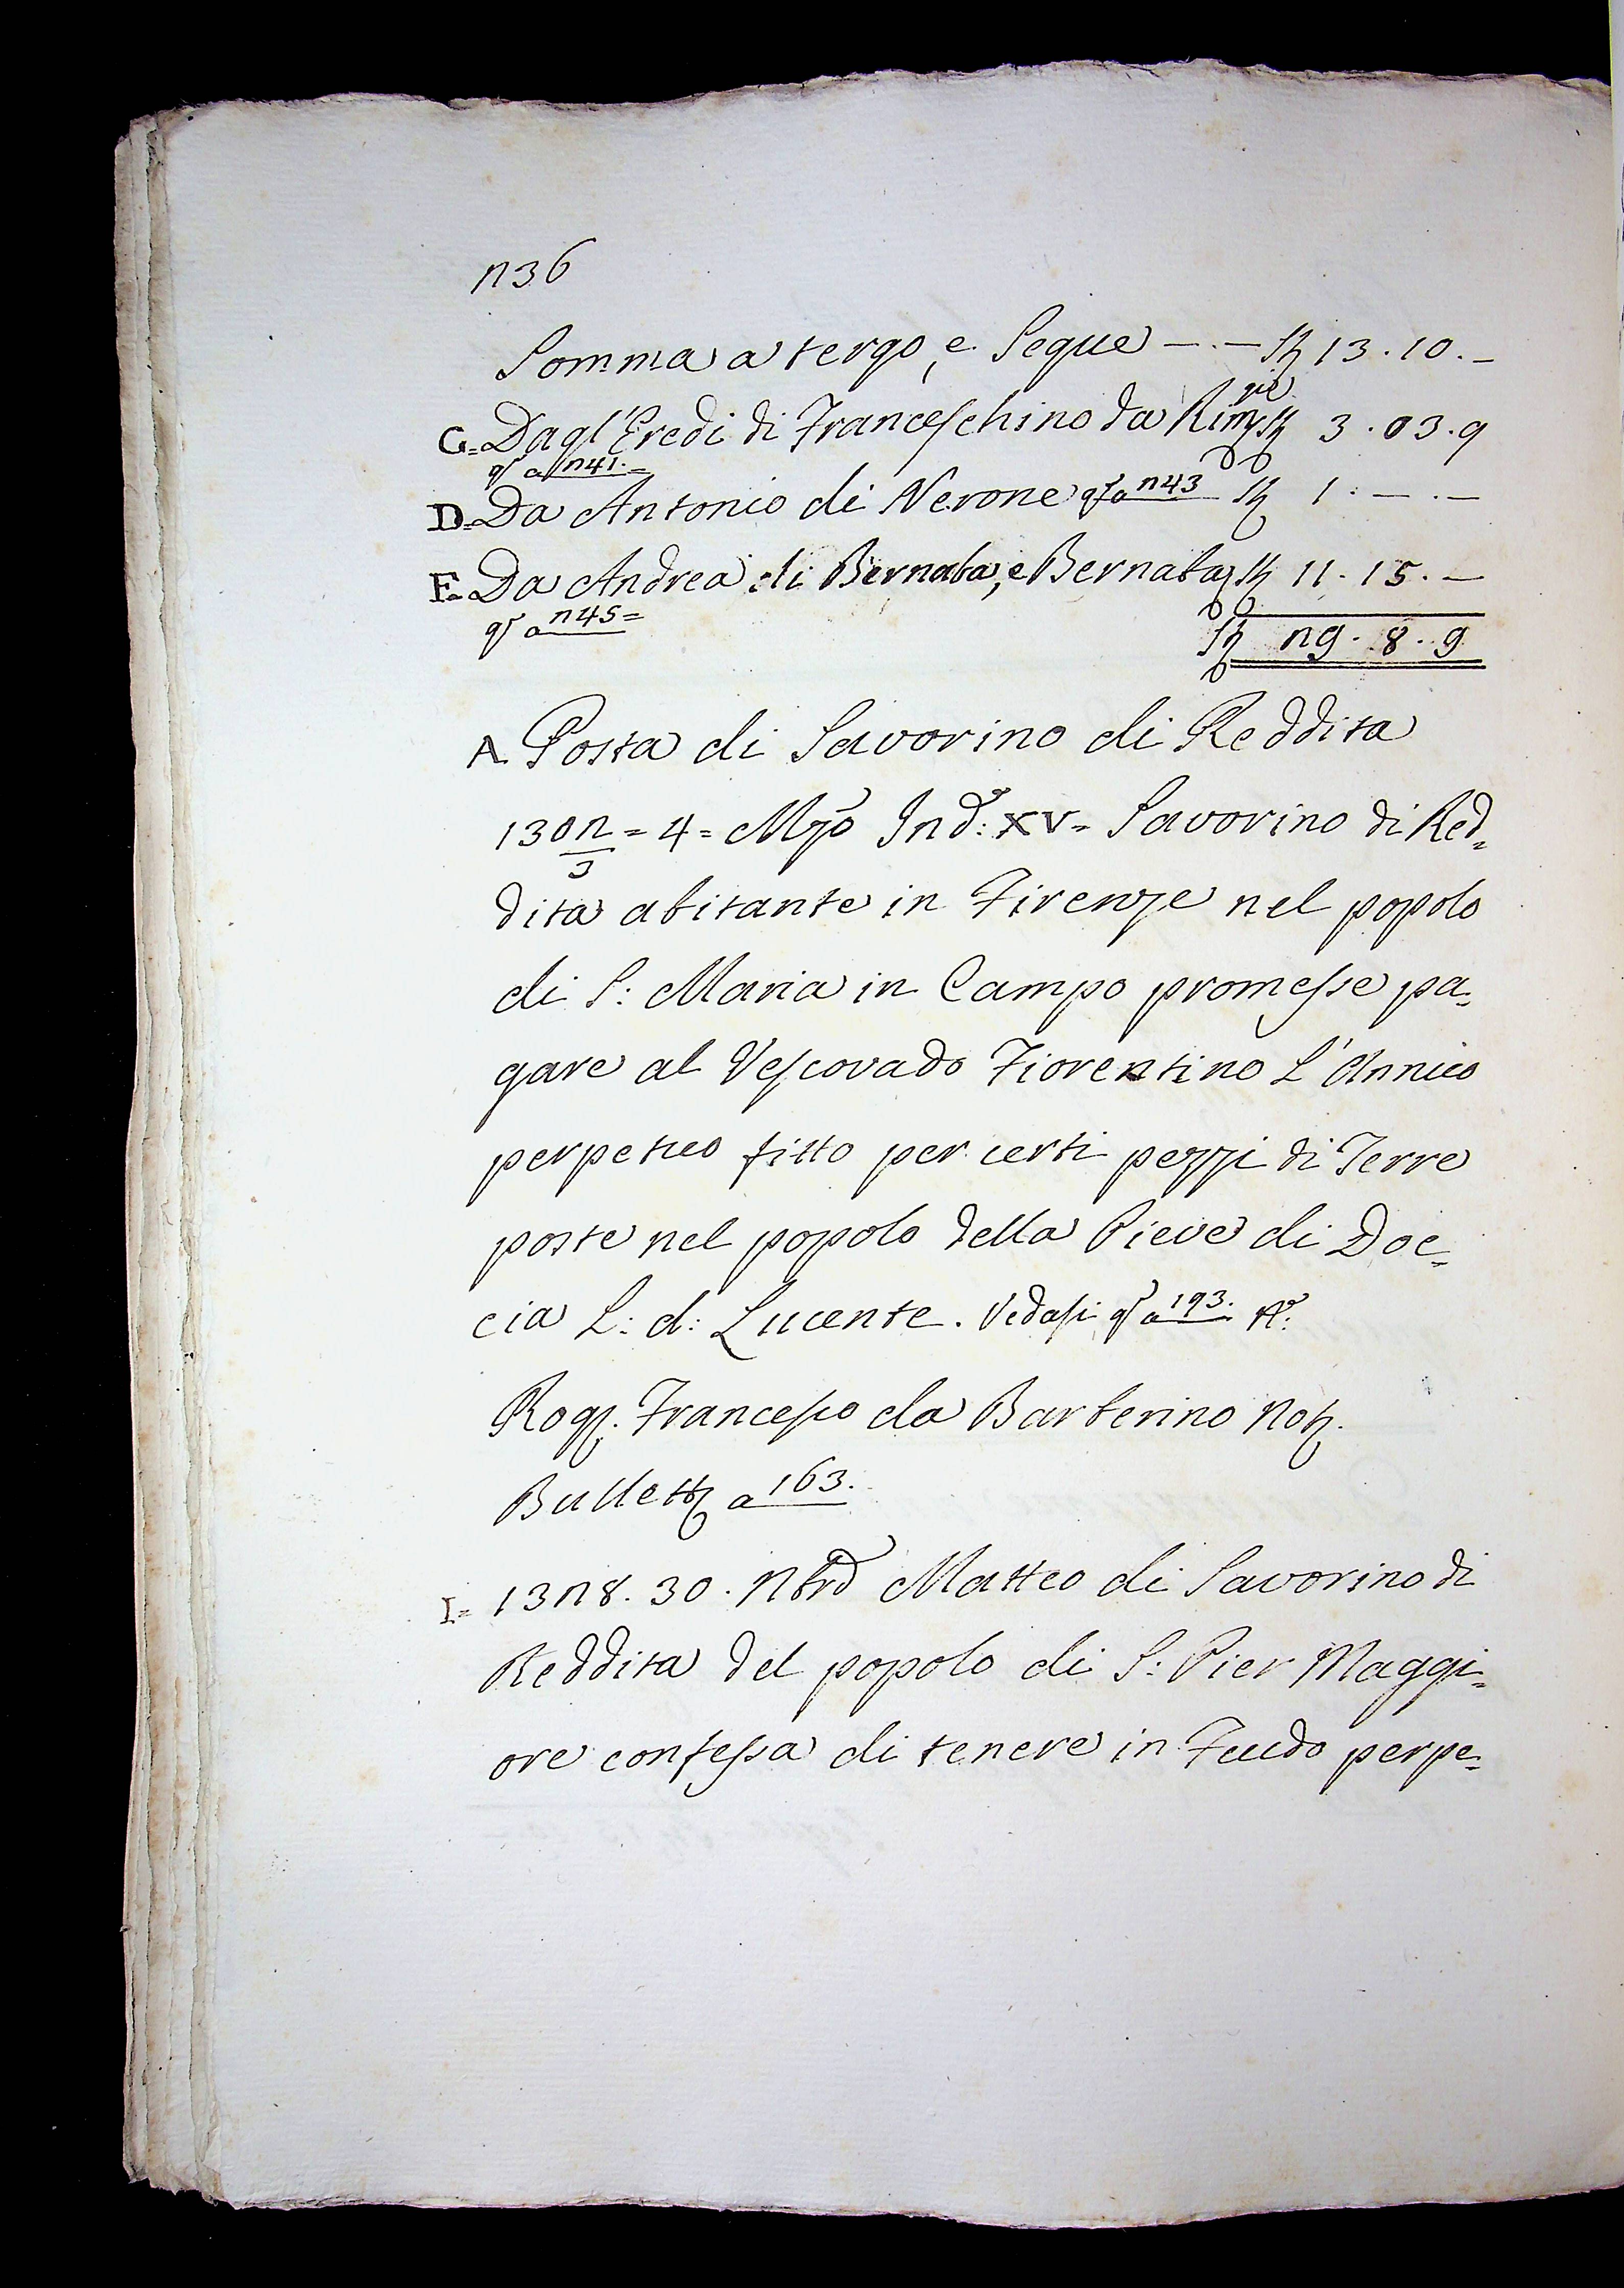 236
Somma a tergo, e Segue — . — St 13 . 10 . —
C= Dagl'Eredi di Franceschino da Rim St 3 . 03 . 9
qo a 241. =
D= Da Antonio di Nerone qo a 243 St 1 . — . —
E= Da Andrea di Bernaba, e Bernaba St 11 . 15 . —
qo a 245 =
St 29 . 8 . 9
A Posta di Savorino di Reddita
1302/3 = 4 = Mzo Ind: XV= Savorino di Red=
dita abitante in Firenze nel popolo
di S: Maria in Campo promesse pa=
gare al Vescovado Fiorentino L'Annuo
perpetuo fitto per certi pezzi di Terre
poste nel popolo della Pieve di Doc=
cia L: d: Lucente. Vedasi qo a 193. A:
Rog. Francesco da Barberino Not.
Bullett a 163.
I= 1328. 30. Nbre Matteo di Savorino di
Reddita del popolo di S: Pier Maggi=
ore confessa di tenere in Feudo perpe=